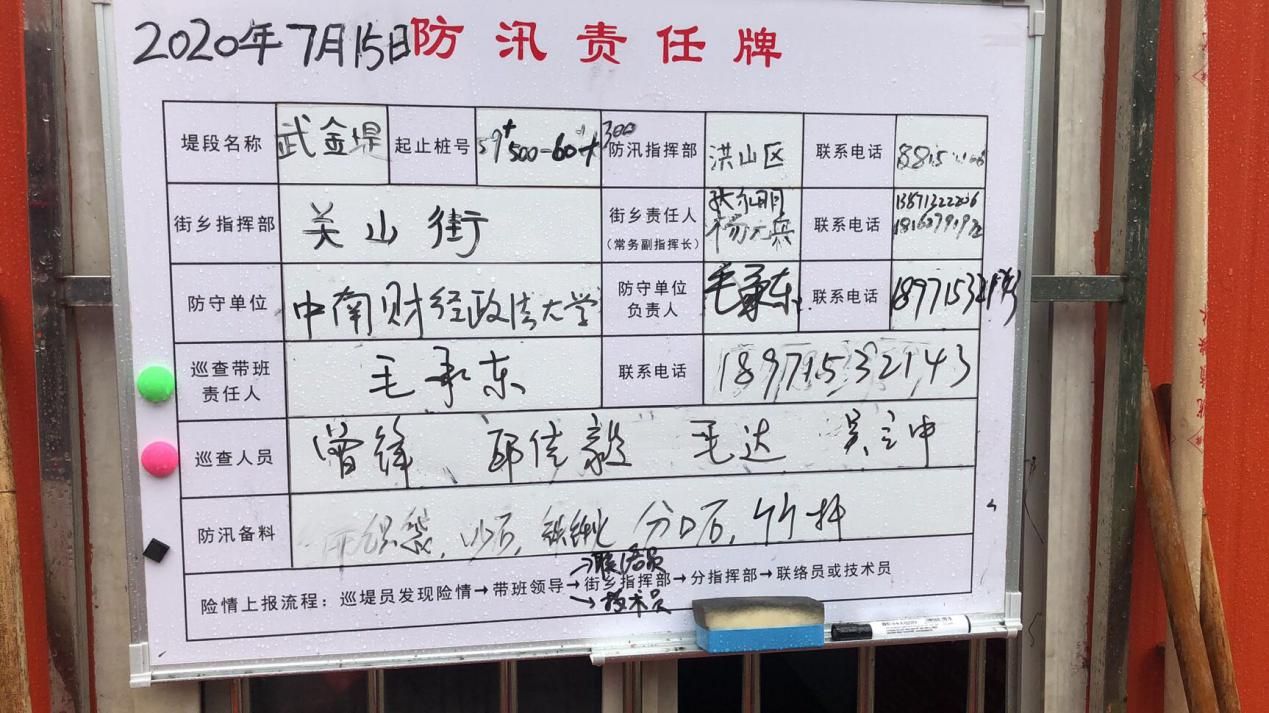 2020年7月15日 防汛责任牌
堤段名称 武金堤 起止桩号 59+500-60+300 防汛指挥部 洪山区 联系电话
街乡指挥部 关山街 街乡责任人 联系电话
(常务副指挥长)
防守单位 中南财经政法大学 防守单位负责人 毛承东 联系电话 18971532143
巡查带班责任人 毛承东 联系电话 18971532143
巡查人员 曾锋 邱佳毅 毛达 吴立中
防汛备料 砂石, 分口石, 竹杆
→联络员
险情上报流程：巡堤员发现险情→带班领导→街乡指挥部→分指挥部→联络员或技术员
→技术员